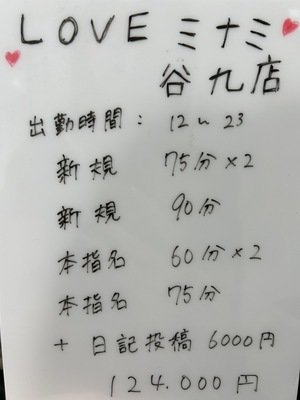 LOVE ミナミ
谷九店
出勤時間: 12〜23
新規 75分×2
新規 90分
本指名 60分×2
本指名 75分
+ 日記投稿 6000円
124.000円